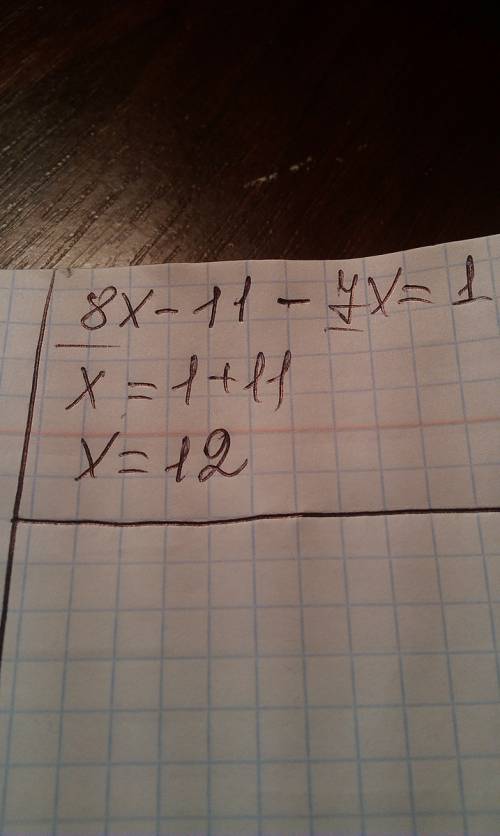 8x - 11 - 7x = 1
x = 1 + 11
x = 12